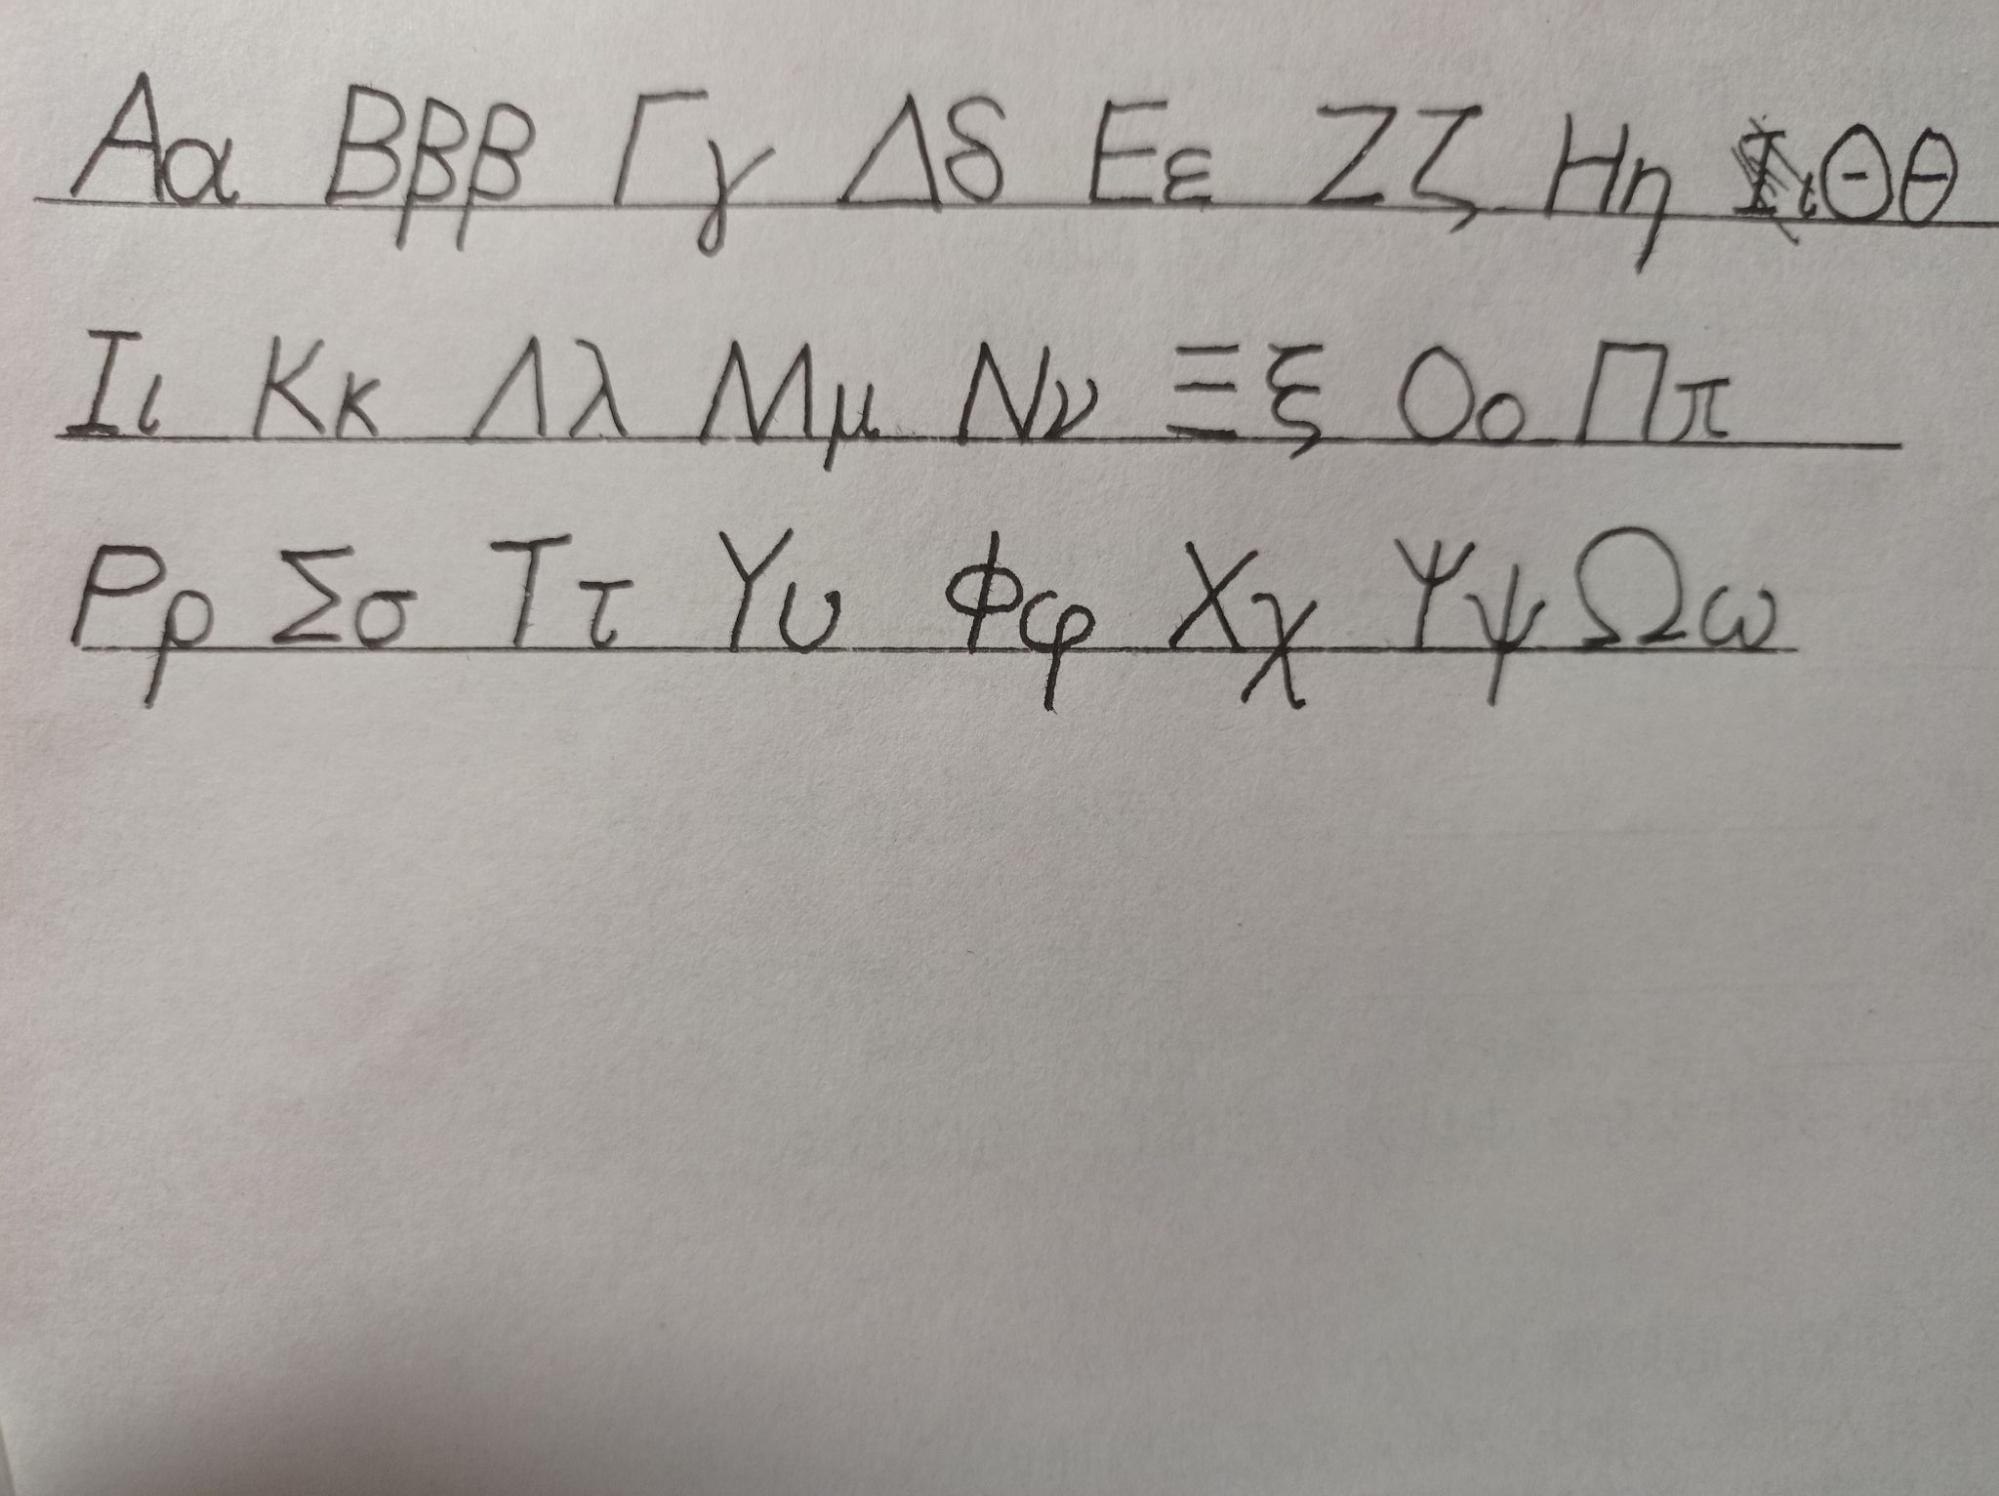 Αα Βββ Γγ Δδ Εε Ζζ Ηη Ιι Θθ
Ιι Κκ Λλ Μμ Νν Ξξ Οο Ππ
Ρρ Σσ Ττ Υυ Φφ Χχ Ψψ Ωω